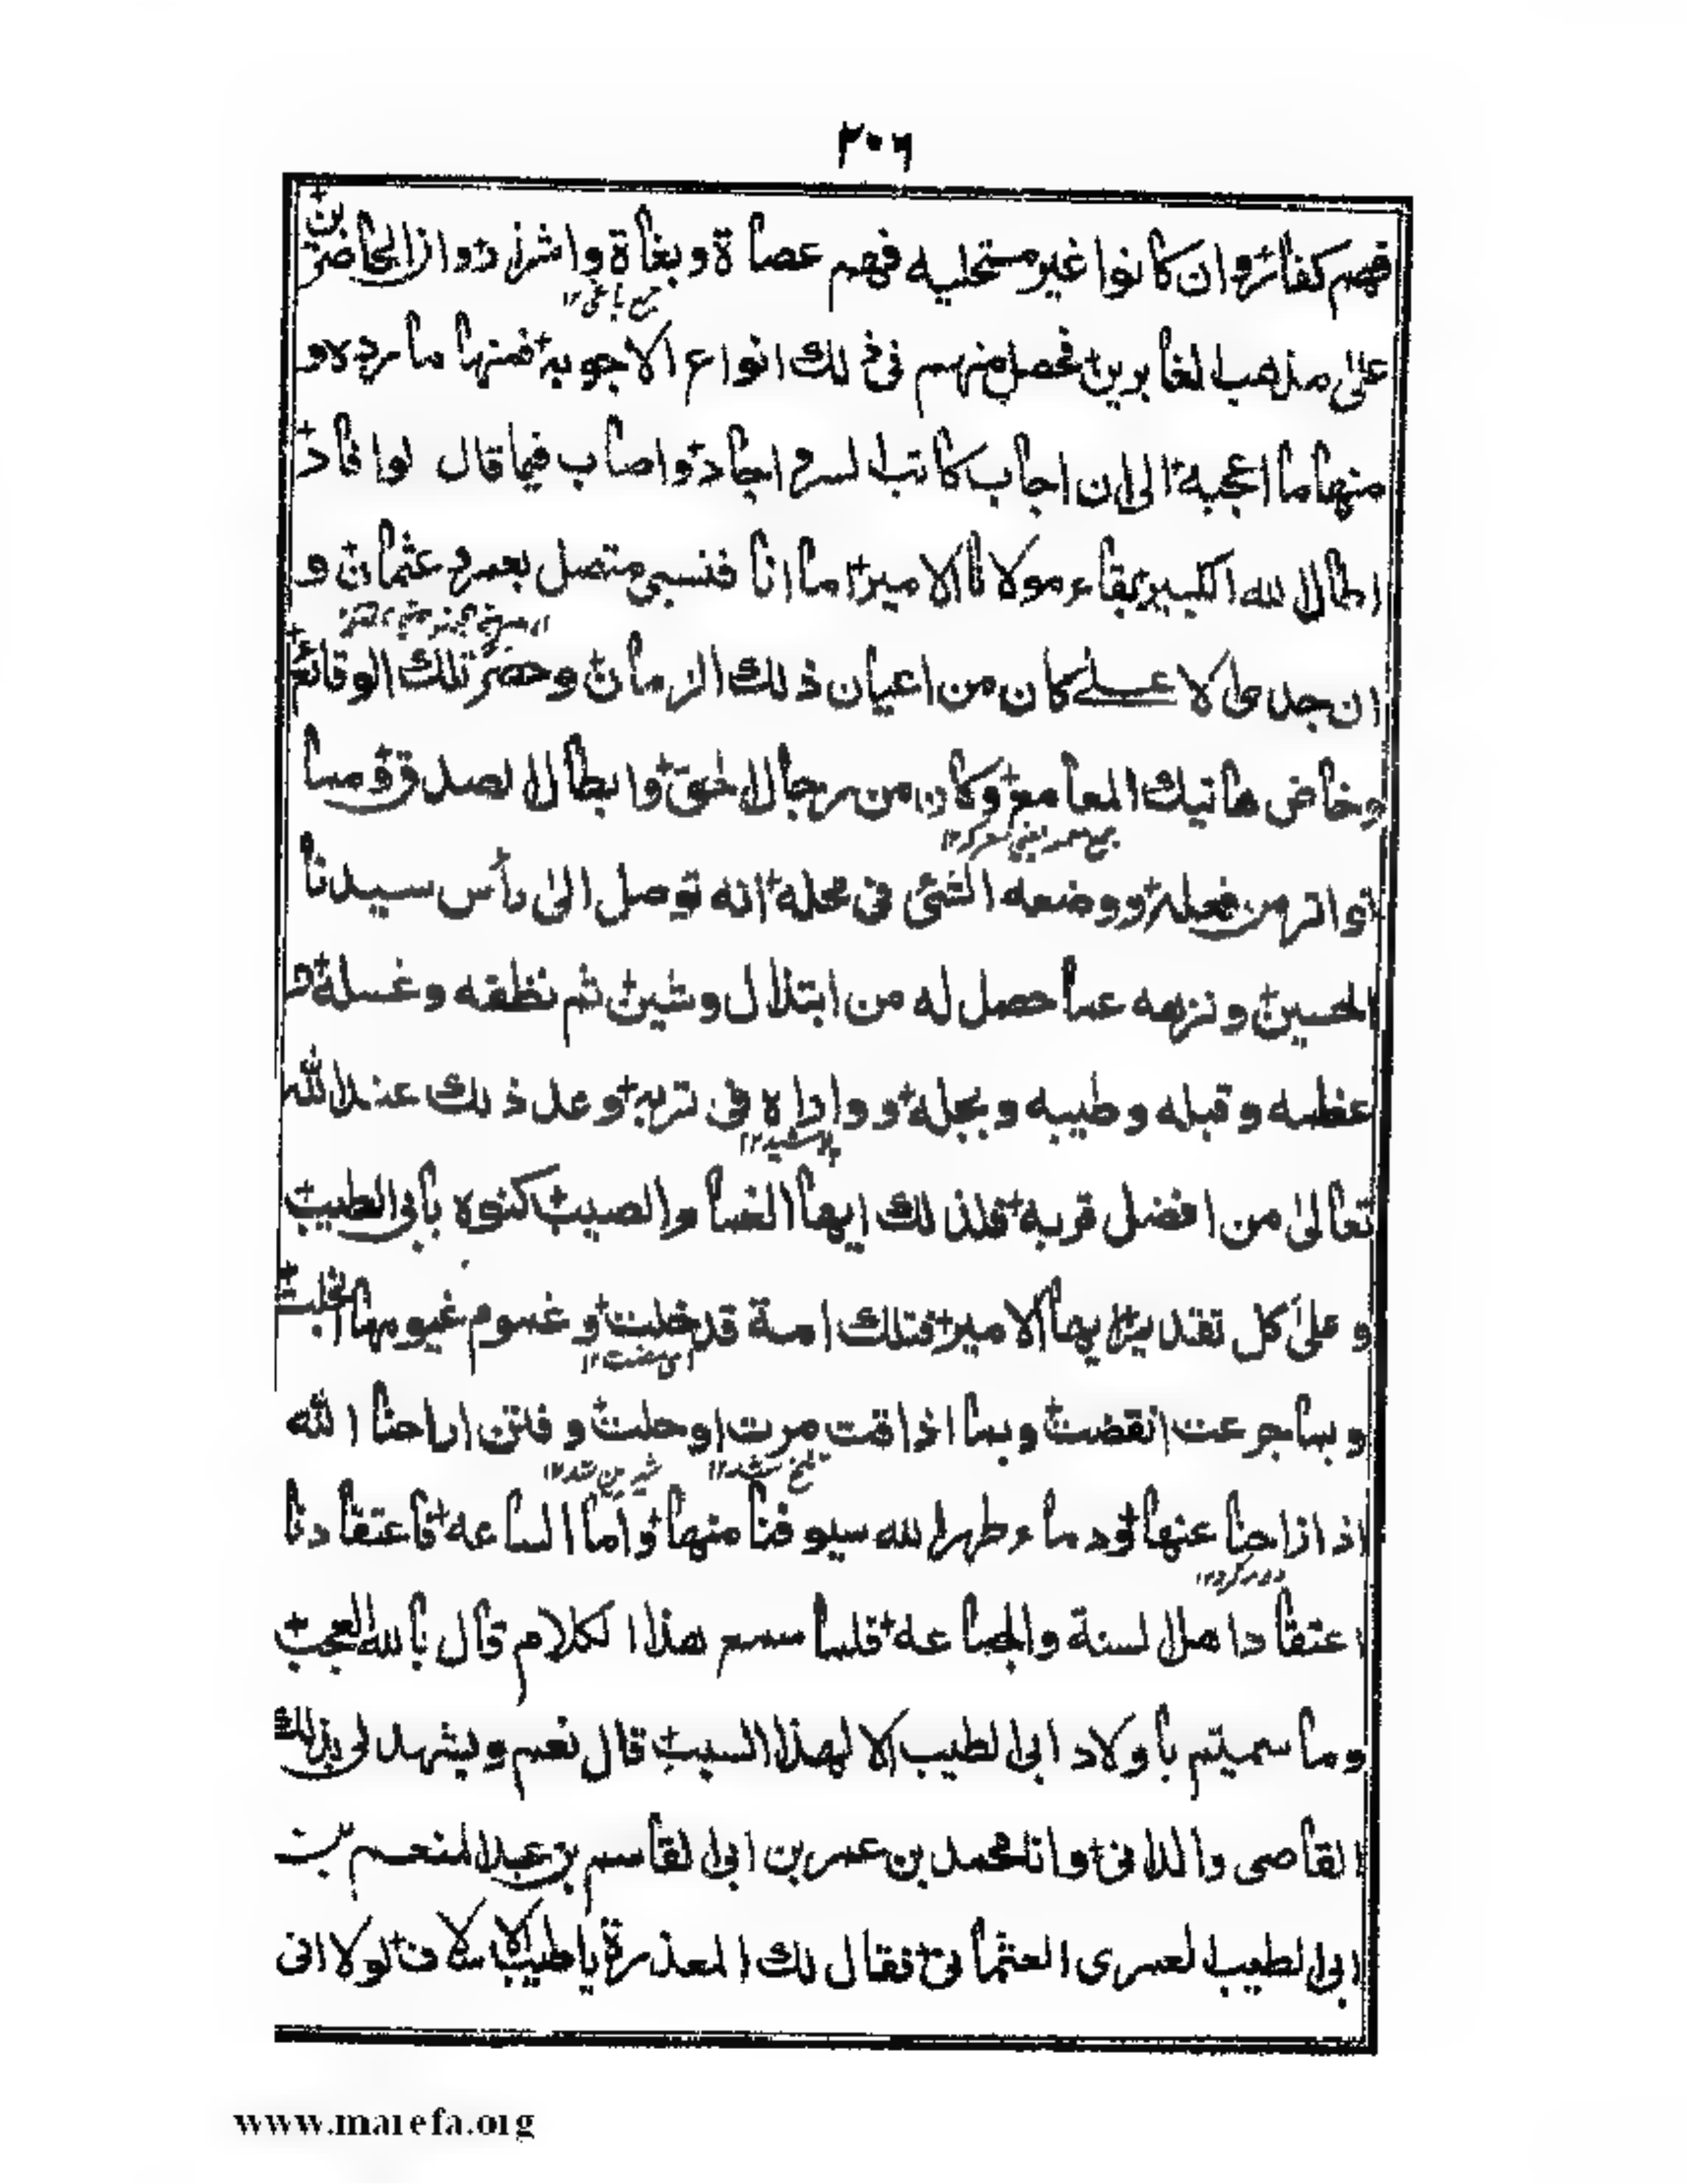 ٢٠٦
فهم كفار وان كانوا غير مستحليه فهم عصاة وبغاة واشرار وان الحاضرين
على مذهب الغابرين فحصل منهم فى ذلك انواع الاجوبة فمنها ما رده و
منها ما اعجبه الى ان اجاب كاتب السر واجاد واصاب فيما قال لو افاد
اطال الله الكبير بقاء مولانا الامير اما انا فنسبى متصل بعمر وعثمان و
ان جدى الاعلى كان من اعيان ذلك الزمان وحضر تلك الوقائع
وخاض هاتيك المعامع وكان من رجال الحق وابطال الصدق ومما
تواتر من فعله ووضعه الشئ فى محله انه توصل الى رأس سيدنا
الحسين ونزهه عما حصل له من ابتذال وشين ثم نظفه وغسله و
عظمه وقبله وطيبه وبجله وواراه فى تربه وعد ذلك عند الله
تعالى من افضل قربه فلذلك ايها الغمام الصيب كنوه بابى الطيب
وعلى كل تقدير ايها الامير فتلك امة قد خلت وغموم غيومها انجلت
وبما جرعت انقضت وبما اذاقت مرت او حلت وفتن اراحنا الله
اذ ازاحنا عنها ودماء طهر الله سيوفنا منها واما الساعه فاعتقادنا
اعتقاد اهل السنة والجماعه فلما سمع هذا الكلام قال يا لله العجب
وما سميتم باولاد ابى الطيب الا لهذا السبب قال نعم ويشهد لى بذلك
القاصى والدانى وانا محمد بن عمر بن ابى القاسم بن عبد المنعم بن
ابى الطيب العمرى العثمانى فقال لك المعذرة يا طيب الاسلاف لولا انى
www.marefa.org